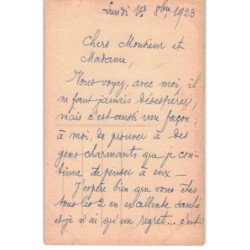 Lundi 1er 8bre 1923
Chers Monsieur et
Madame,
Vous voyez, avec moi, il
ne faut jamais désespérer,
mais c'est aussi une façon
à moi, de prouver à des
gens charmants que je con-
tinue de penser à eux —
J'espère bien que vous êtes
tous les 2 en excellente santé
et je n'ai qu'un regret... c'est